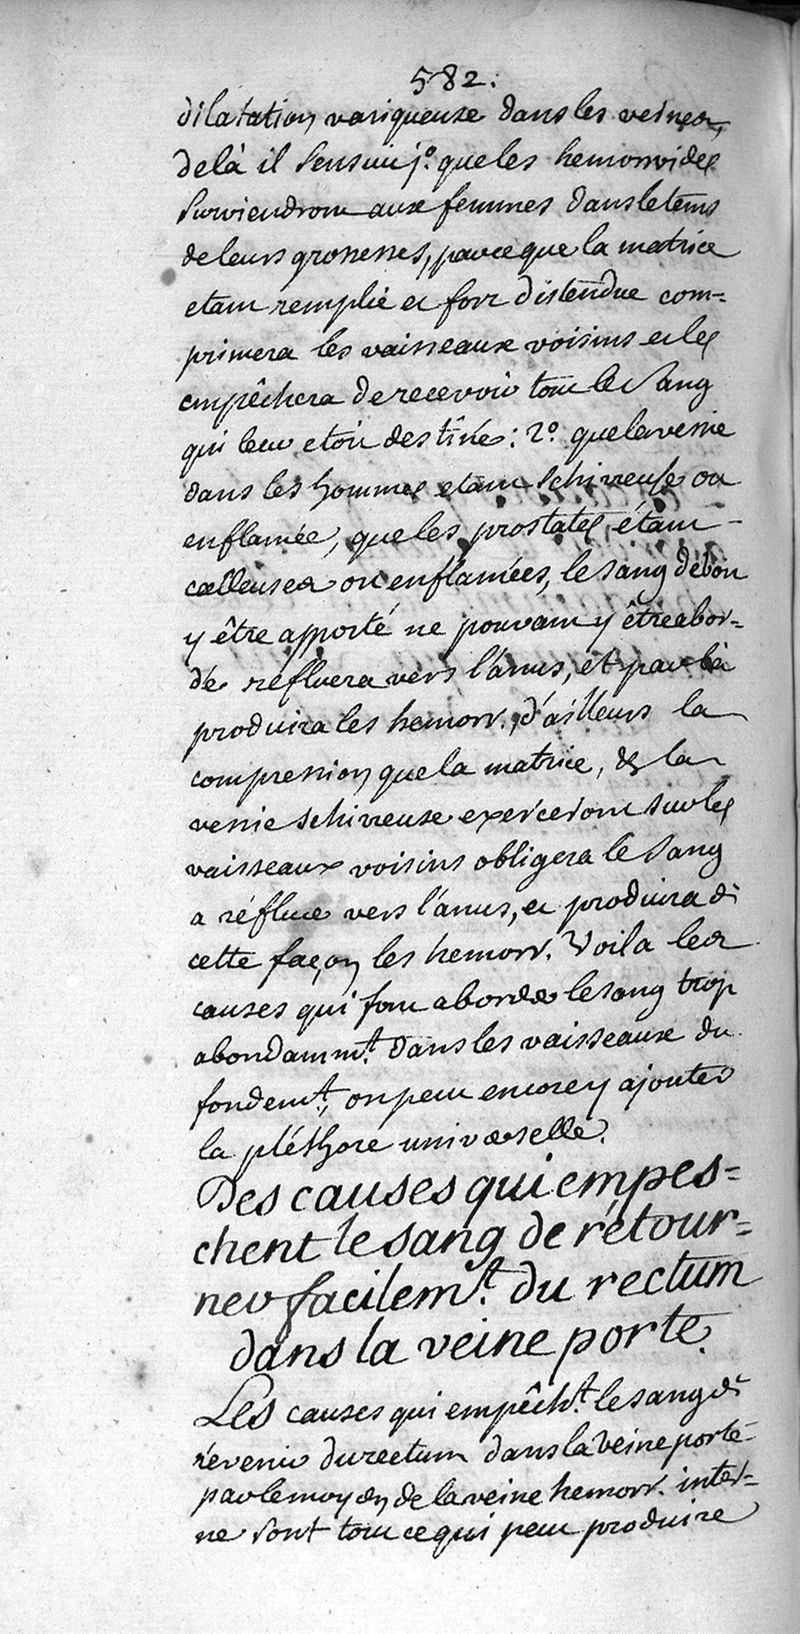 582.
dilatation variqueuse dans les veines,
delà il sensuit 1º. que les hemorroides
surviendront aux femmes dans le tems
de leurs grossesses, parce que la matrice
etant remplie et fort distendue com=
primera les vaisseaux voisins et les
empêchera de recevoir tout le sang
qui leur etoit destiné: 2º. que la vessie
dans les hommes etant schirreuse ou
enflamée, que les prostates étant -
calleuses ou enflamées, le sang devant
y être apporté ne pouvant y être abor=
dé refluera vers l'anus, et par là
produira les hemorr., d'ailleurs la
compression que la matrice, & la
vessie schirreuse exerceront sur les
vaisseaux voisins obligera le sang
a réfluer vers l'anus, et produira de
cette façon les hemorr. Voila les
causes qui font aborder le sang trop
abondamm.t dans les vaisseaux du
fondem.t, on peut encore y ajouter
la pléthore universelle.
Des causes qui empes=
chent le sang de rétour=
ner facilem.t du rectum
dans la veine porte.
Les causes qui empêch.t le sang de
révenir du rectum dans la veine porte
par le moyen de la veine hemorr. inter=
ne sont tout ce qui peut produire